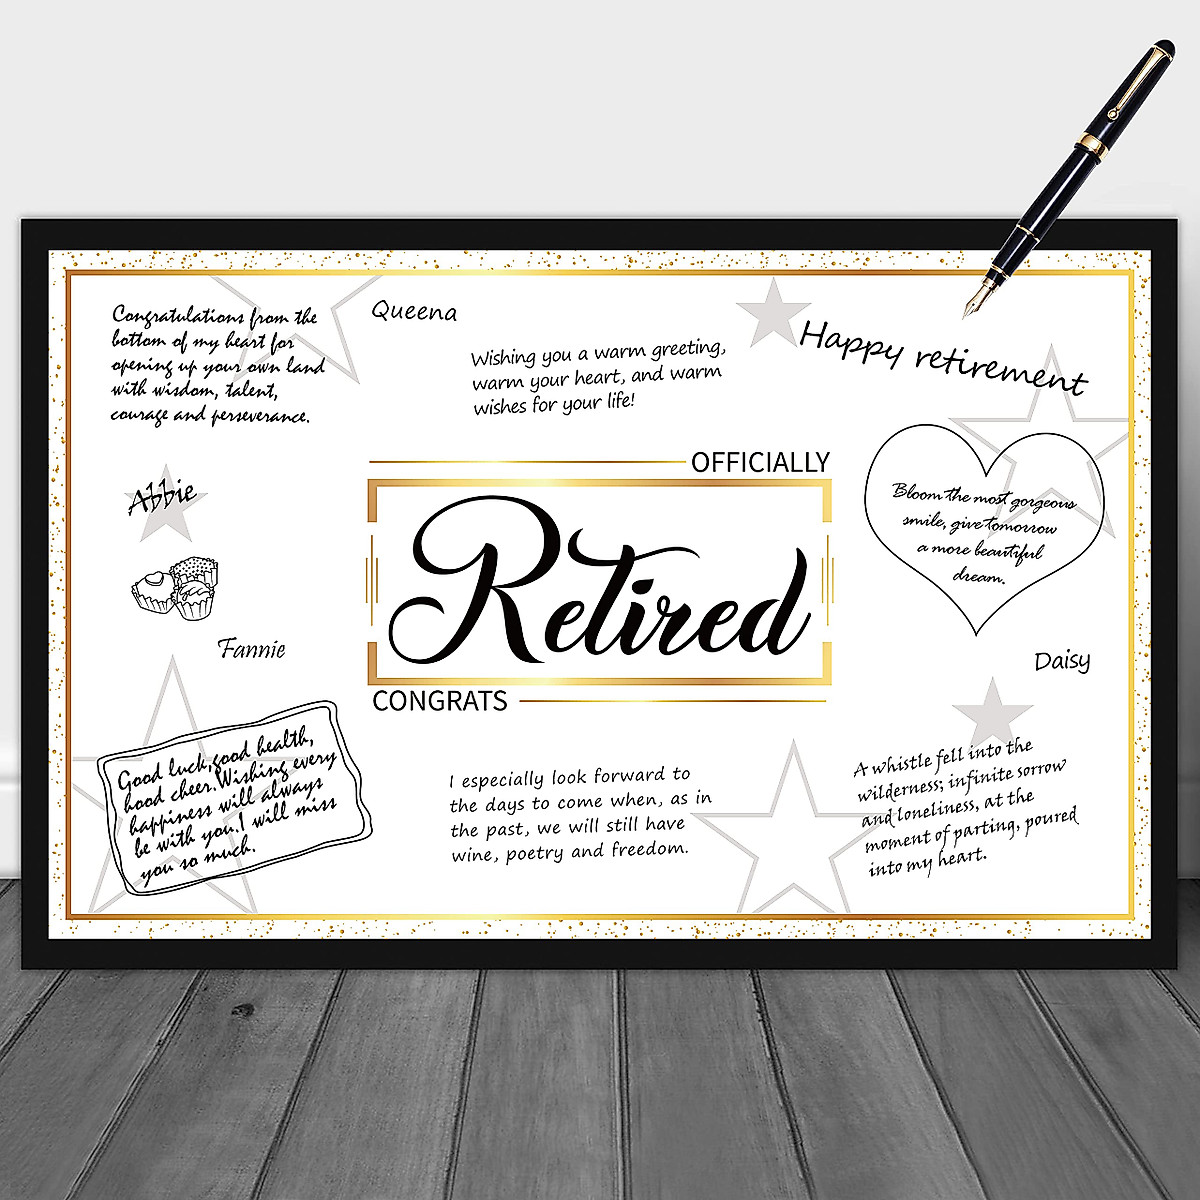 Congratulations from the
bottom of my heart for
opening up your own land
with wisdom, talent,
courage and perseverance.
Queena
Wishing you a warm greeting,
warm your heart, and warm
wishes for your life!
Happy retirement
Abbie
OFFICIALLY
Retired
CONGRATS
Bloom the most gorgeous
smile, give tomorrow
a more beautiful
dream.
Fannie
Daisy
Good luck,good health,
hood cheer.Wishing every
happiness will always
be with you.I will miss
you so much.
I especially look forward to
the days to come when, as in
the past, we will still have
wine, poetry and freedom.
A whistle fell into the
wilderness; infinite sorrow
and loneliness, at the
moment of parting, poured
into my heart.